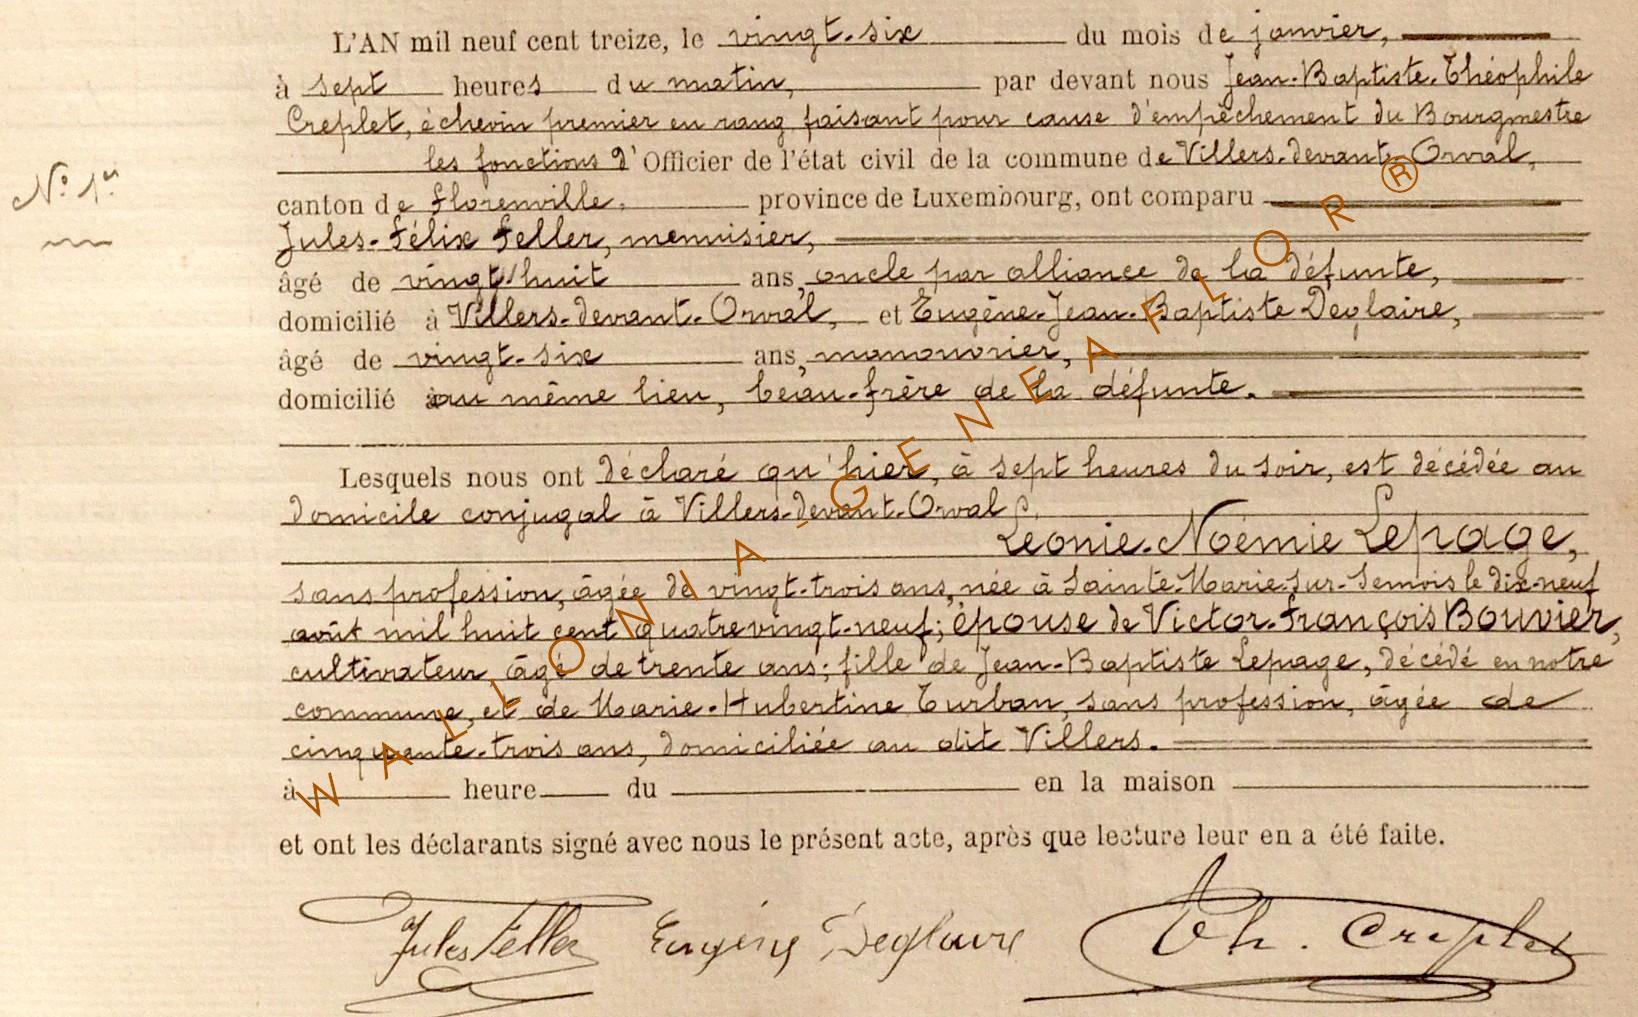 L'AN mil neuf cent treize, le vingt-six du mois de janvier,
à sept heures du matin, par devant nous Jean-Baptiste-Théophile
Creplet, échevin premier en rang faisant pour cause d'empêchement du Bourgmestre
les fonctions d'Officier de l'état civil de la commune de Villers-devant-Orval,
N° 1er
canton de Florenville, province de Luxembourg, ont comparu
Jules-Félix Feller, menuisier,
âgé de vingt-huit ans, oncle par alliance de la défunte,
domicilié à Villers-devant-Orval, et Eugène-Jean-Baptiste Deglaire,
âgé de vingt-six ans, manouvrier,
domicilié au même lieu, beau-frère de la défunte.
Lesquels nous ont déclaré qu'hier, à sept heures du soir, est décédée au
domicile conjugal à Villers-devant-Orval
Léonie-Noémie Lepage,
sans profession, âgée de vingt-trois ans, née à Sainte-Marie-sur-Semois le dix-neuf
août mil huit cent quatrevingt-neuf; épouse de Victor-François Bouvier,
cultivateur, âgé de trente ans; fille de Jean-Baptiste Lepage, décédé en notre
commune, et de Marie-Hubertine Turban, sans profession, âgée de
cinquante-trois ans, domiciliée au dit Villers.
à heure du en la maison
et ont les déclarants signé avec nous le présent acte, après que lecture leur en a été faite.
Jules Feller Eugène Deglaire Th. Creplet
WALLONIA-GENEAFLOR®